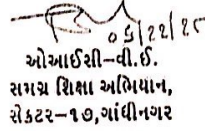 ઓઆઈસી-વી.ઈ.
સમગ્ર શિક્ષા અભિયાન,
સેકટર-૧૭,ગાંધીનગર